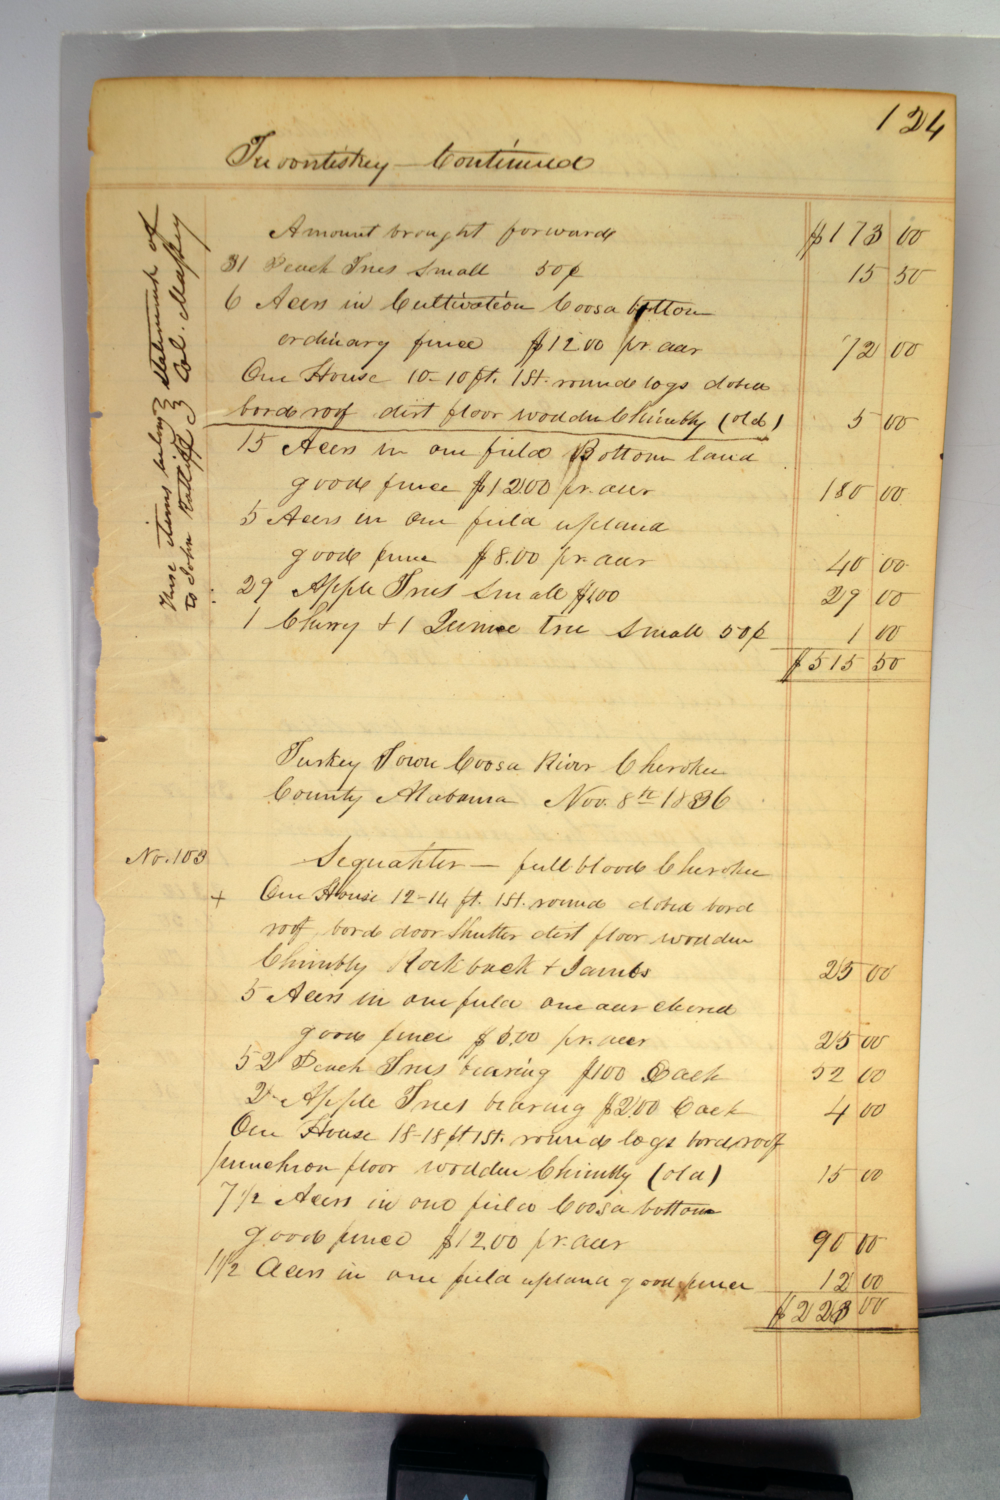 124
Tucontiskey — Continued
Amount brought forward $173 00
31 Peach Trees Small 50¢ 15 50
6 Acers in Cultivation Coosa bottom
ordinary fence $12.00 pr. acer 72 00
One House 10-10 ft. 1 St. round logs dobed
bord roof dirt floor wooden Chimbly (old) 5 00
15 Acers in one field Bottom land
good fence $12.00 pr. acer 180 00
5 Acers in one field upland
good fence $8.00 pr. acer 40 00
29 Apple Trees Small $1.00 29 00
1 Cherry + 1 Quince tree Small 50¢ 1 00
$515 50
These items belong } statement of
to John Ratliff } Col. Maskey
Turkey Town Coosa River Cherokee
County Alabama Nov. 8th 1836
No. 103 Sequahter — full blood Cherokee
+ One House 12-14 ft. 1 St. round dobed bord
roof bord door Shutter dirt floor wooden
Chimbly Rock back + Jambs 25 00
5 Acers in one field one acer cleared
good fence $5.00 pr. acer 25 00
52 Peach Trees bearing $1.00 Each 52 00
2 Apple Trees bearing $2.00 Each 4 00
One House 18-18 ft 1 St. round logs bord roof
puncheon floor wooden Chimbly (old) 15 00
7 1/2 Acers in one field Coosa bottom
good fence $12.00 pr. acer 90 00
1 1/2 Acers in one field upland good fence 12 00
$223 00